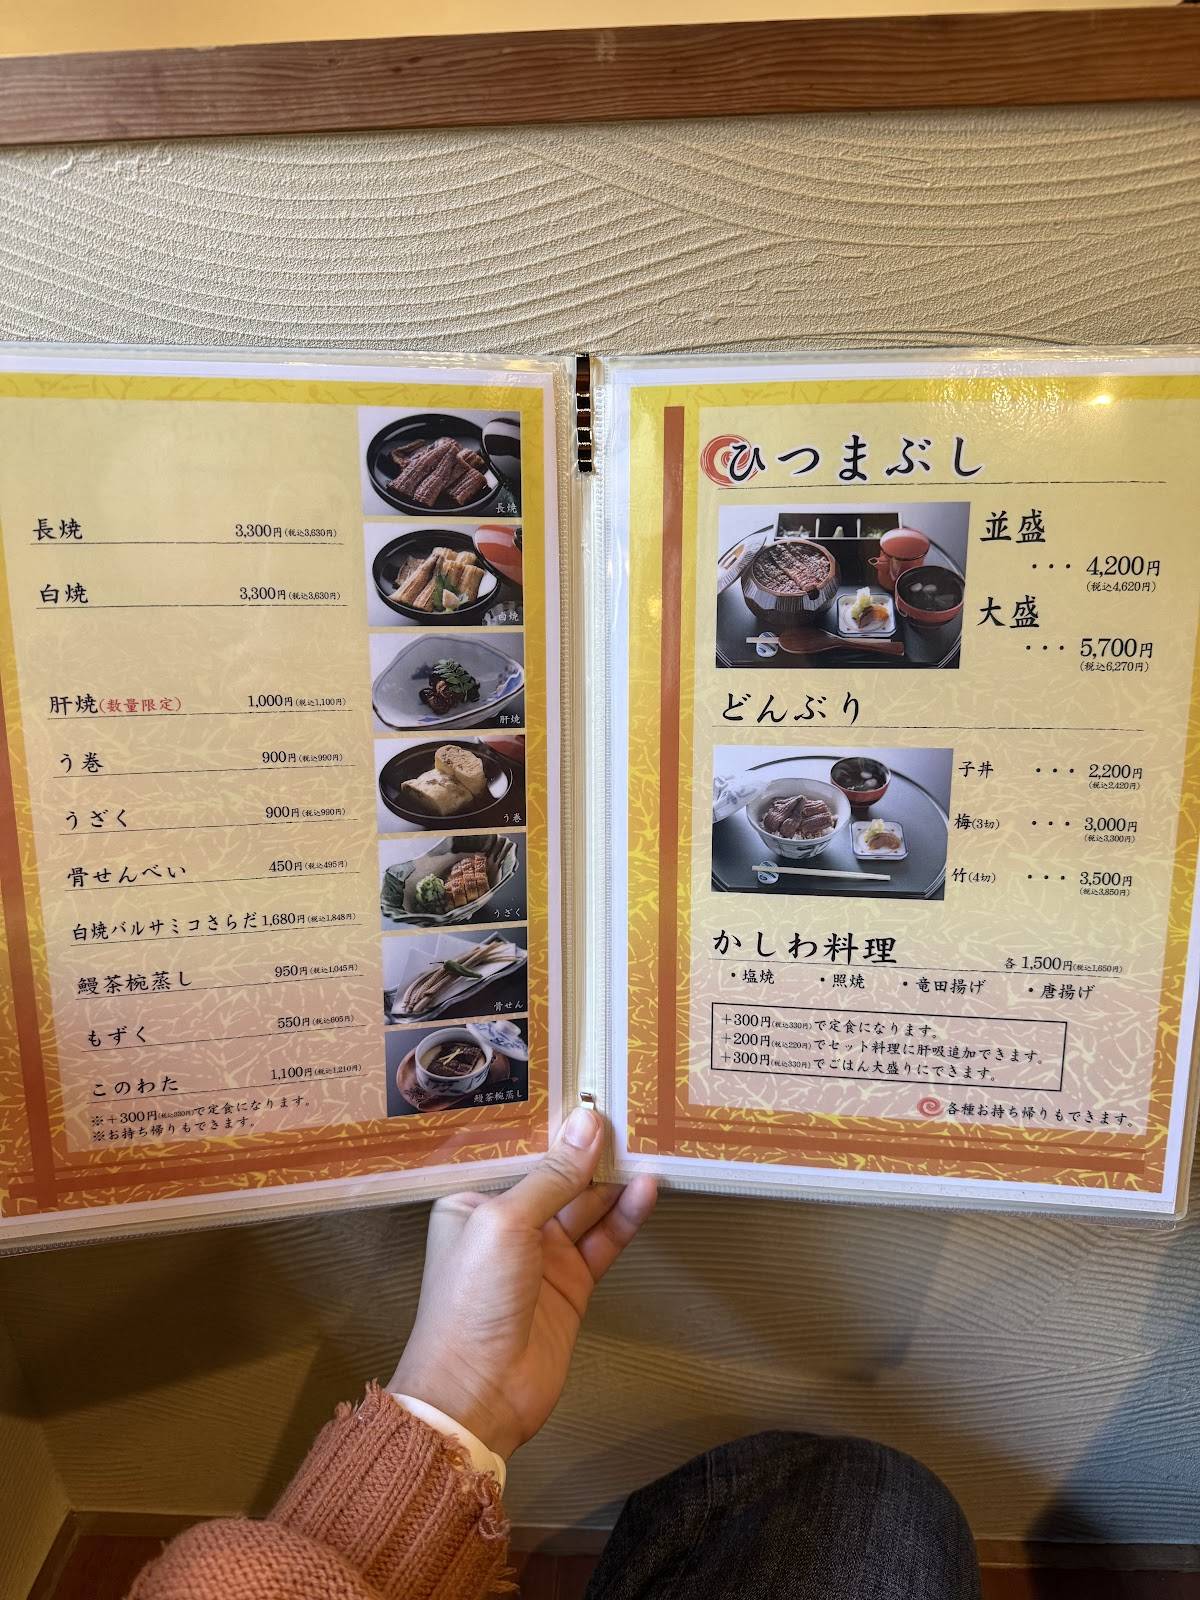 長焼 3,300円(税込3,630円)
白焼 3,300円(税込3,630円)
肝焼(数量限定) 1,000円(税込1,100円)
う巻 900円(税込990円)
うざく 900円(税込990円)
骨せんべい 450円(税込495円)
白焼バルサミコさらだ 1,680円(税込1,848円)
鰻茶椀蒸し 950円(税込1,045円)
もずく 550円(税込605円)
このわた 1,100円(税込1,210円)
※+300円(税込330円)で定食になります。
※お持ち帰りもできます。
長焼
白焼
肝焼
う巻
うざく
骨せん
鰻茶椀蒸し
ひつまぶし
並盛
・・・4,200円
(税込4,620円)
大盛
・・・5,700円
(税込6,270円)
どんぶり
子丼 ・・・2,200円
(税込2,420円)
梅(3切) ・・・3,000円
(税込3,300円)
竹(4切) ・・・3,500円
(税込3,850円)
かしわ料理 各1,500円(税込1,650円)
・塩焼 ・照焼 ・竜田揚げ ・唐揚げ
+300円(税込330円)で定食になります。
+200円(税込220円)でセット料理に肝吸追加できます。
+300円(税込330円)でごはん大盛りにできます。
各種お持ち帰りもできます。